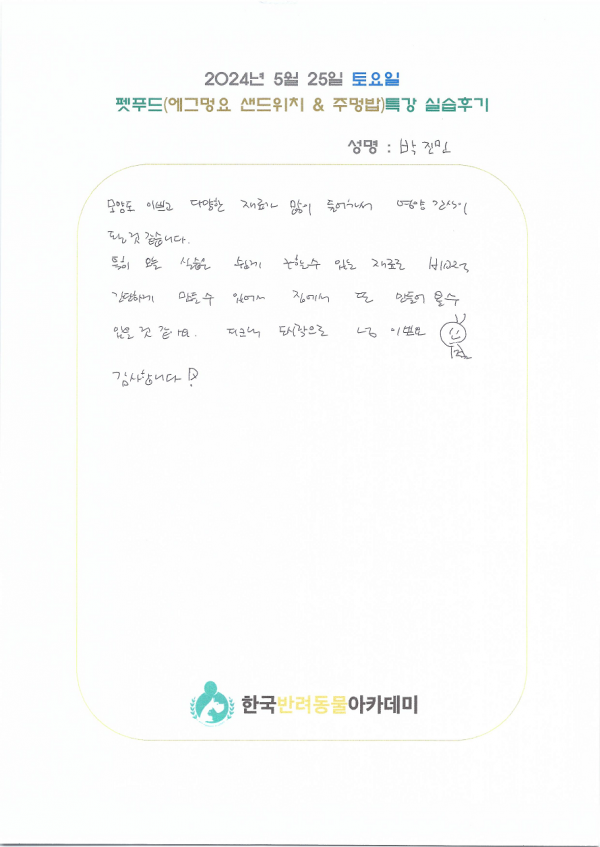 2024년 5월 25일 토요일
펫푸드(에그멍요 샌드위치 & 주멍밥)특강 실습후기
성명 : 박진만
모양도 이쁘고 다양한 재료가 많이 들어가서 영양 간식이
되는 것 같습니다.
특히 오늘 실습은 쉽게 구할수 있는 재료로 비교적
간단하게 만들수 있어서 집에서 또 만들어 볼수
있을 것 같아요. 피크닉 도시락으로 너무 이뻐요
감사합니다
한국반려동물아카데미